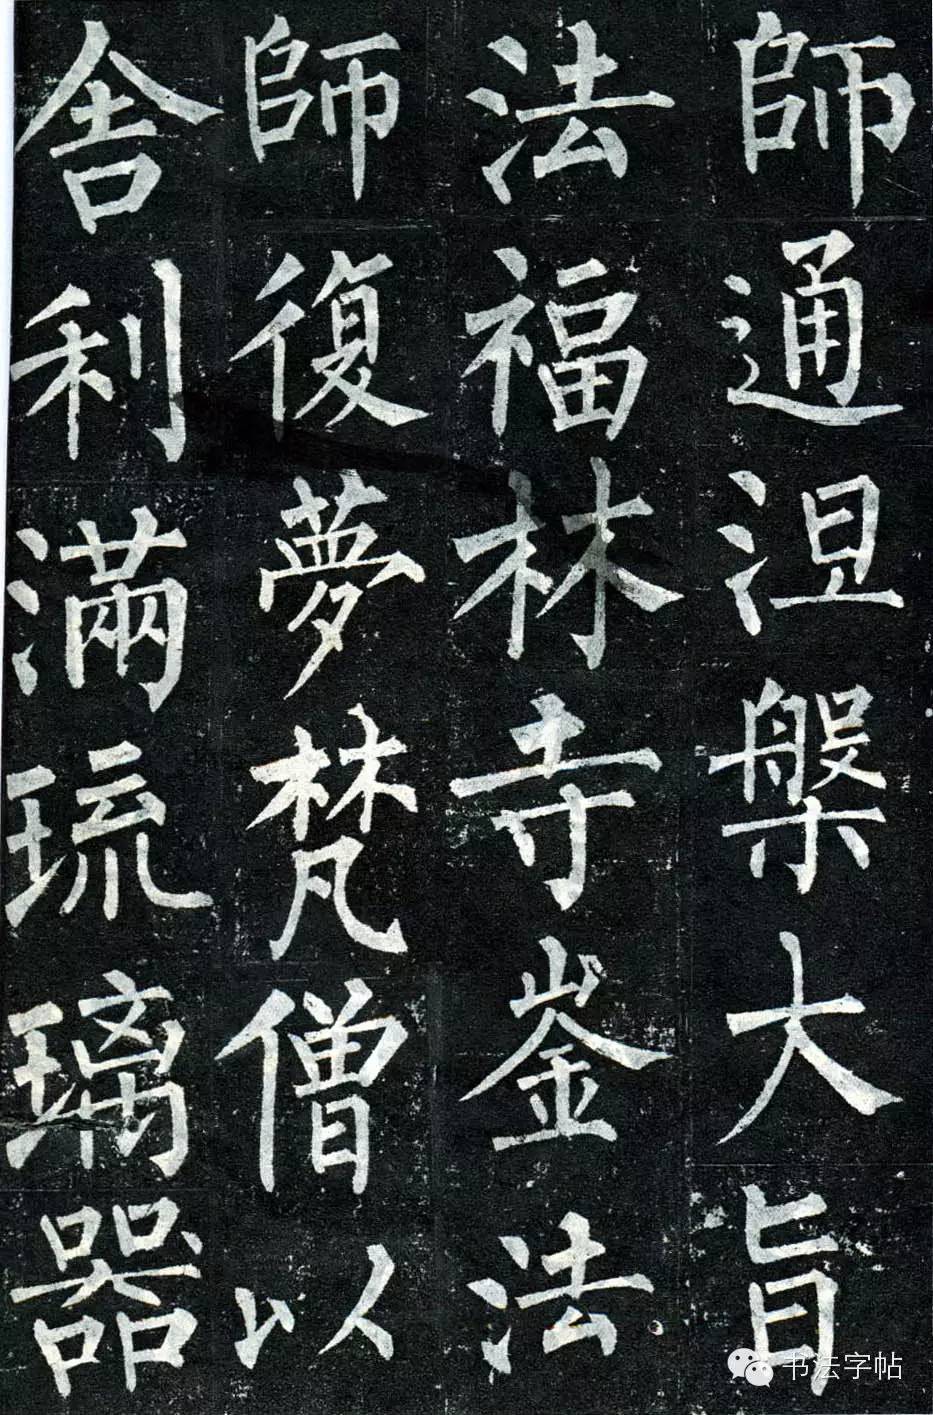 師通涅槃大旨
法福林寺崟法
師復夢梵僧以
舍利滿琉璃器
书法字帖